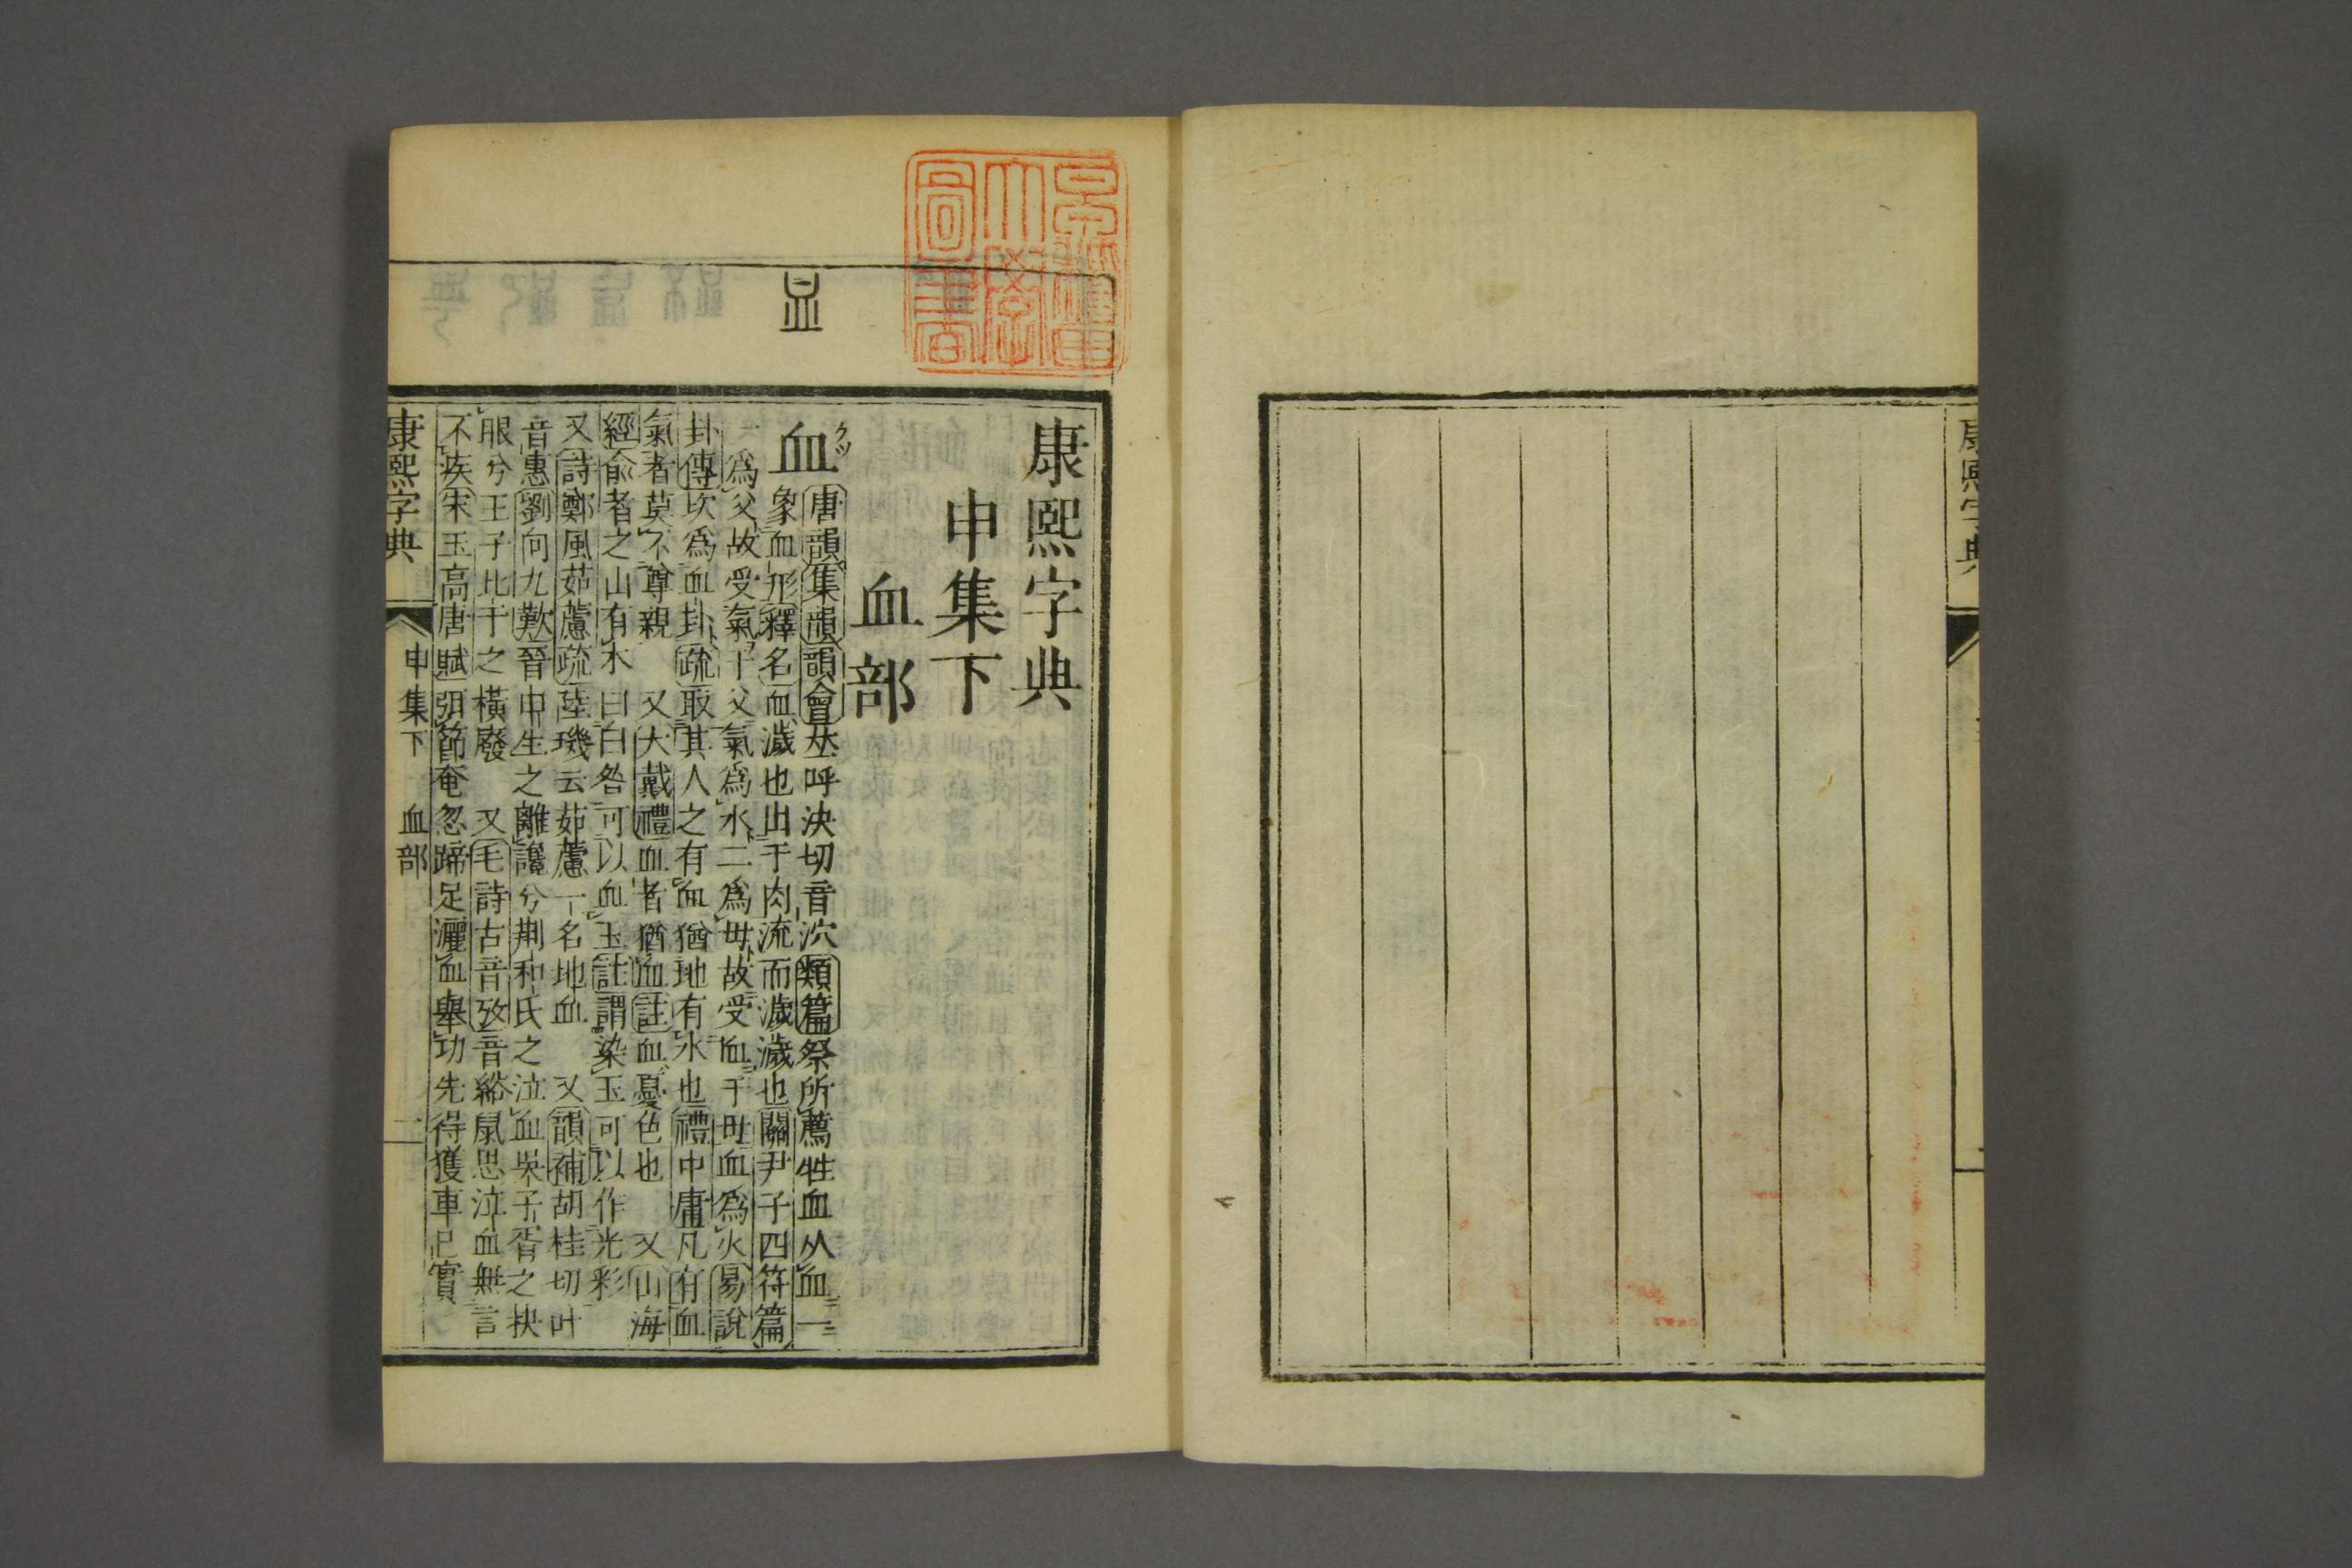 康熙字典
康熙字典
申集下
血部
血
クツ
血
唐韻集韻韻會𠀤呼決切音泬類篇祭所薦牲血从血一
象血形釋名血濊也出于肉流而濊濊也關尹子四符篇
一爲父故受氣于父氣爲水二爲母故受血于母血爲火易說
卦傳坎爲血卦疏取其人之有血猶地有水也禮中庸凡有血
氣者莫不尊親　又大戴禮血者猶血註血憂色也　又山海
經兪者之山有木　曰白咎可以血玉註謂染玉可以作光彩
又詩鄭風茹藘疏陸璣云茹藘一名地血　又韻補胡桂切叶
音惠劉向九歎晉申生之離讒兮荆和氏之泣血吳子胥之抉
眼兮王子比干之橫廢　又毛詩古音攷音綌鼠思泣血無言
不疾宋玉高唐賦弭節奄忽蹄足灑血舉功先得獲車已實
康熙字典
申集下
血部
一